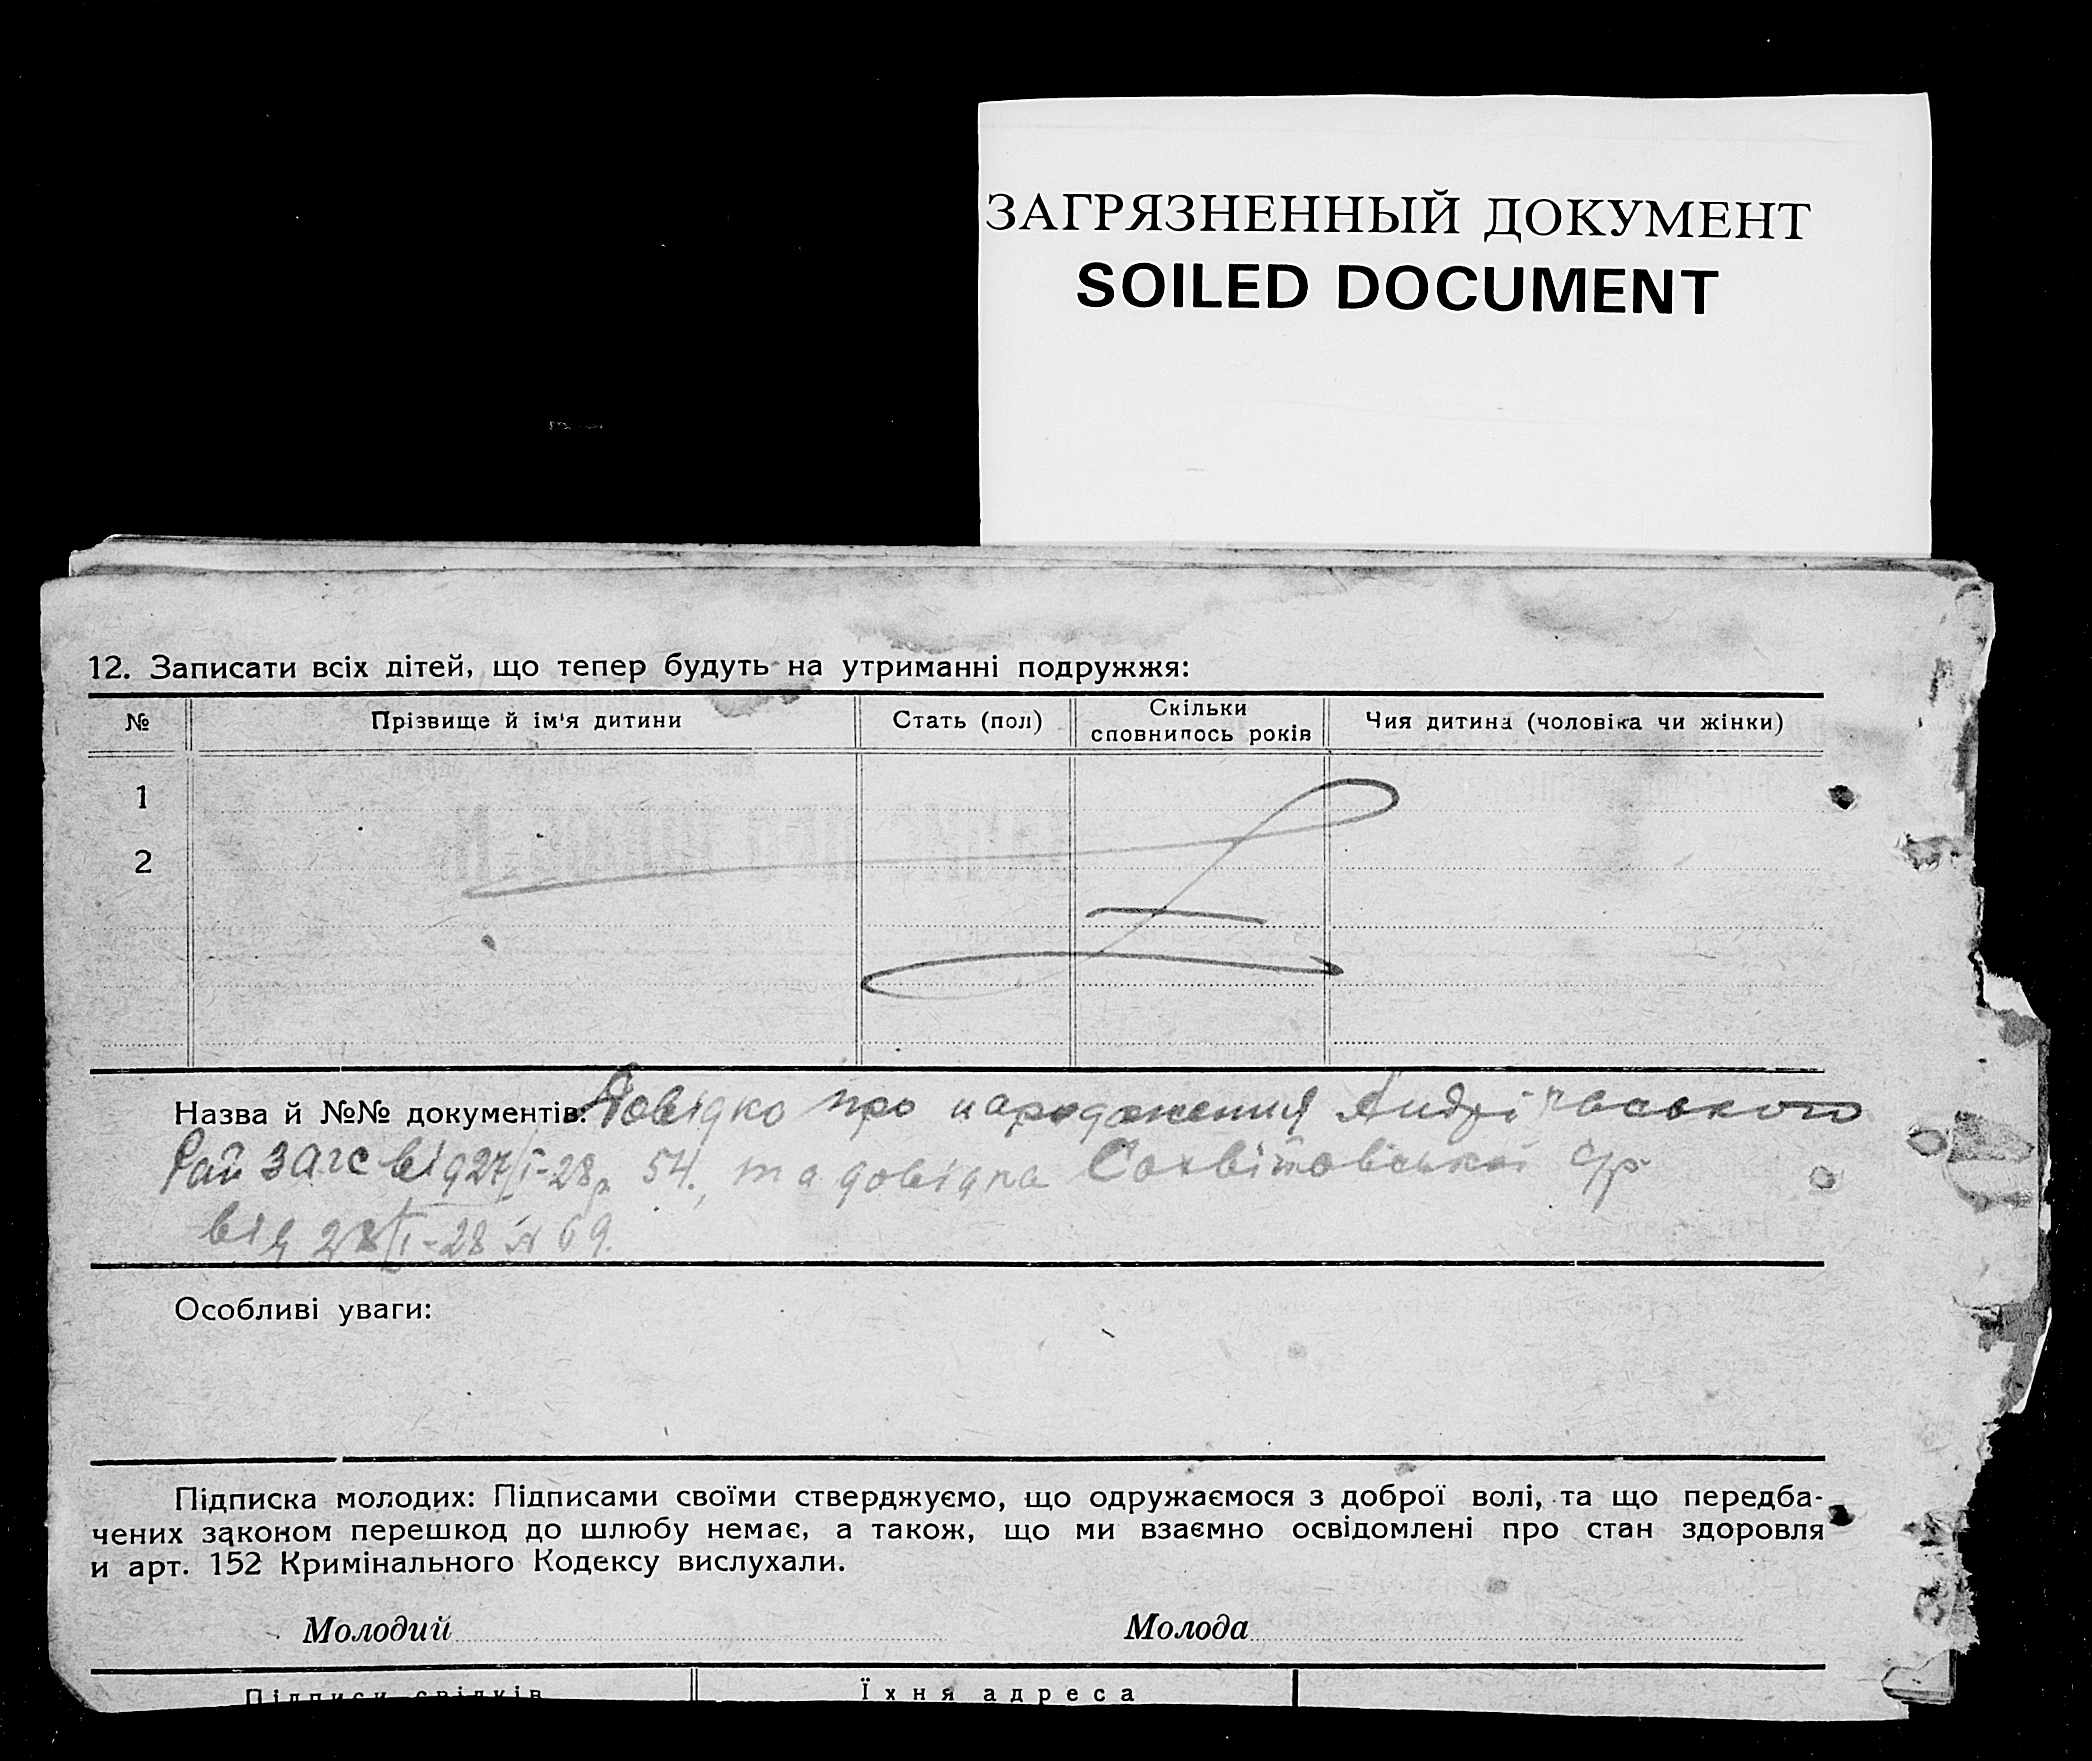 ЗАГРЯЗНЕННЫЙ ДОКУМЕНТ
SOILED DOCUMENT
12. Записати всіх дітей, що тепер будуть на утриманні подружжя:
№ Прізвище й ім'я дитини Стать (пол) Скільки сповнилось років Чия дитина (чоловіка чи жінки)
1
2
Назва й №№ документів: Довідко про народження
Рай загс від 27/I-28р 54., та довідка
від 28/I-28 № 69.
Особливі уваги:
Підписка молодих: Підписами своїми стверджуємо, що одружаємося з доброї волі, та що передба-
чених законом перешкод до шлюбу немає, а також, що ми взаємно освідомлені про стан здоровля
и арт. 152 Кримінального Кодексу вислухали.
Молодий Молода
Підписи свідків Їхня адреса